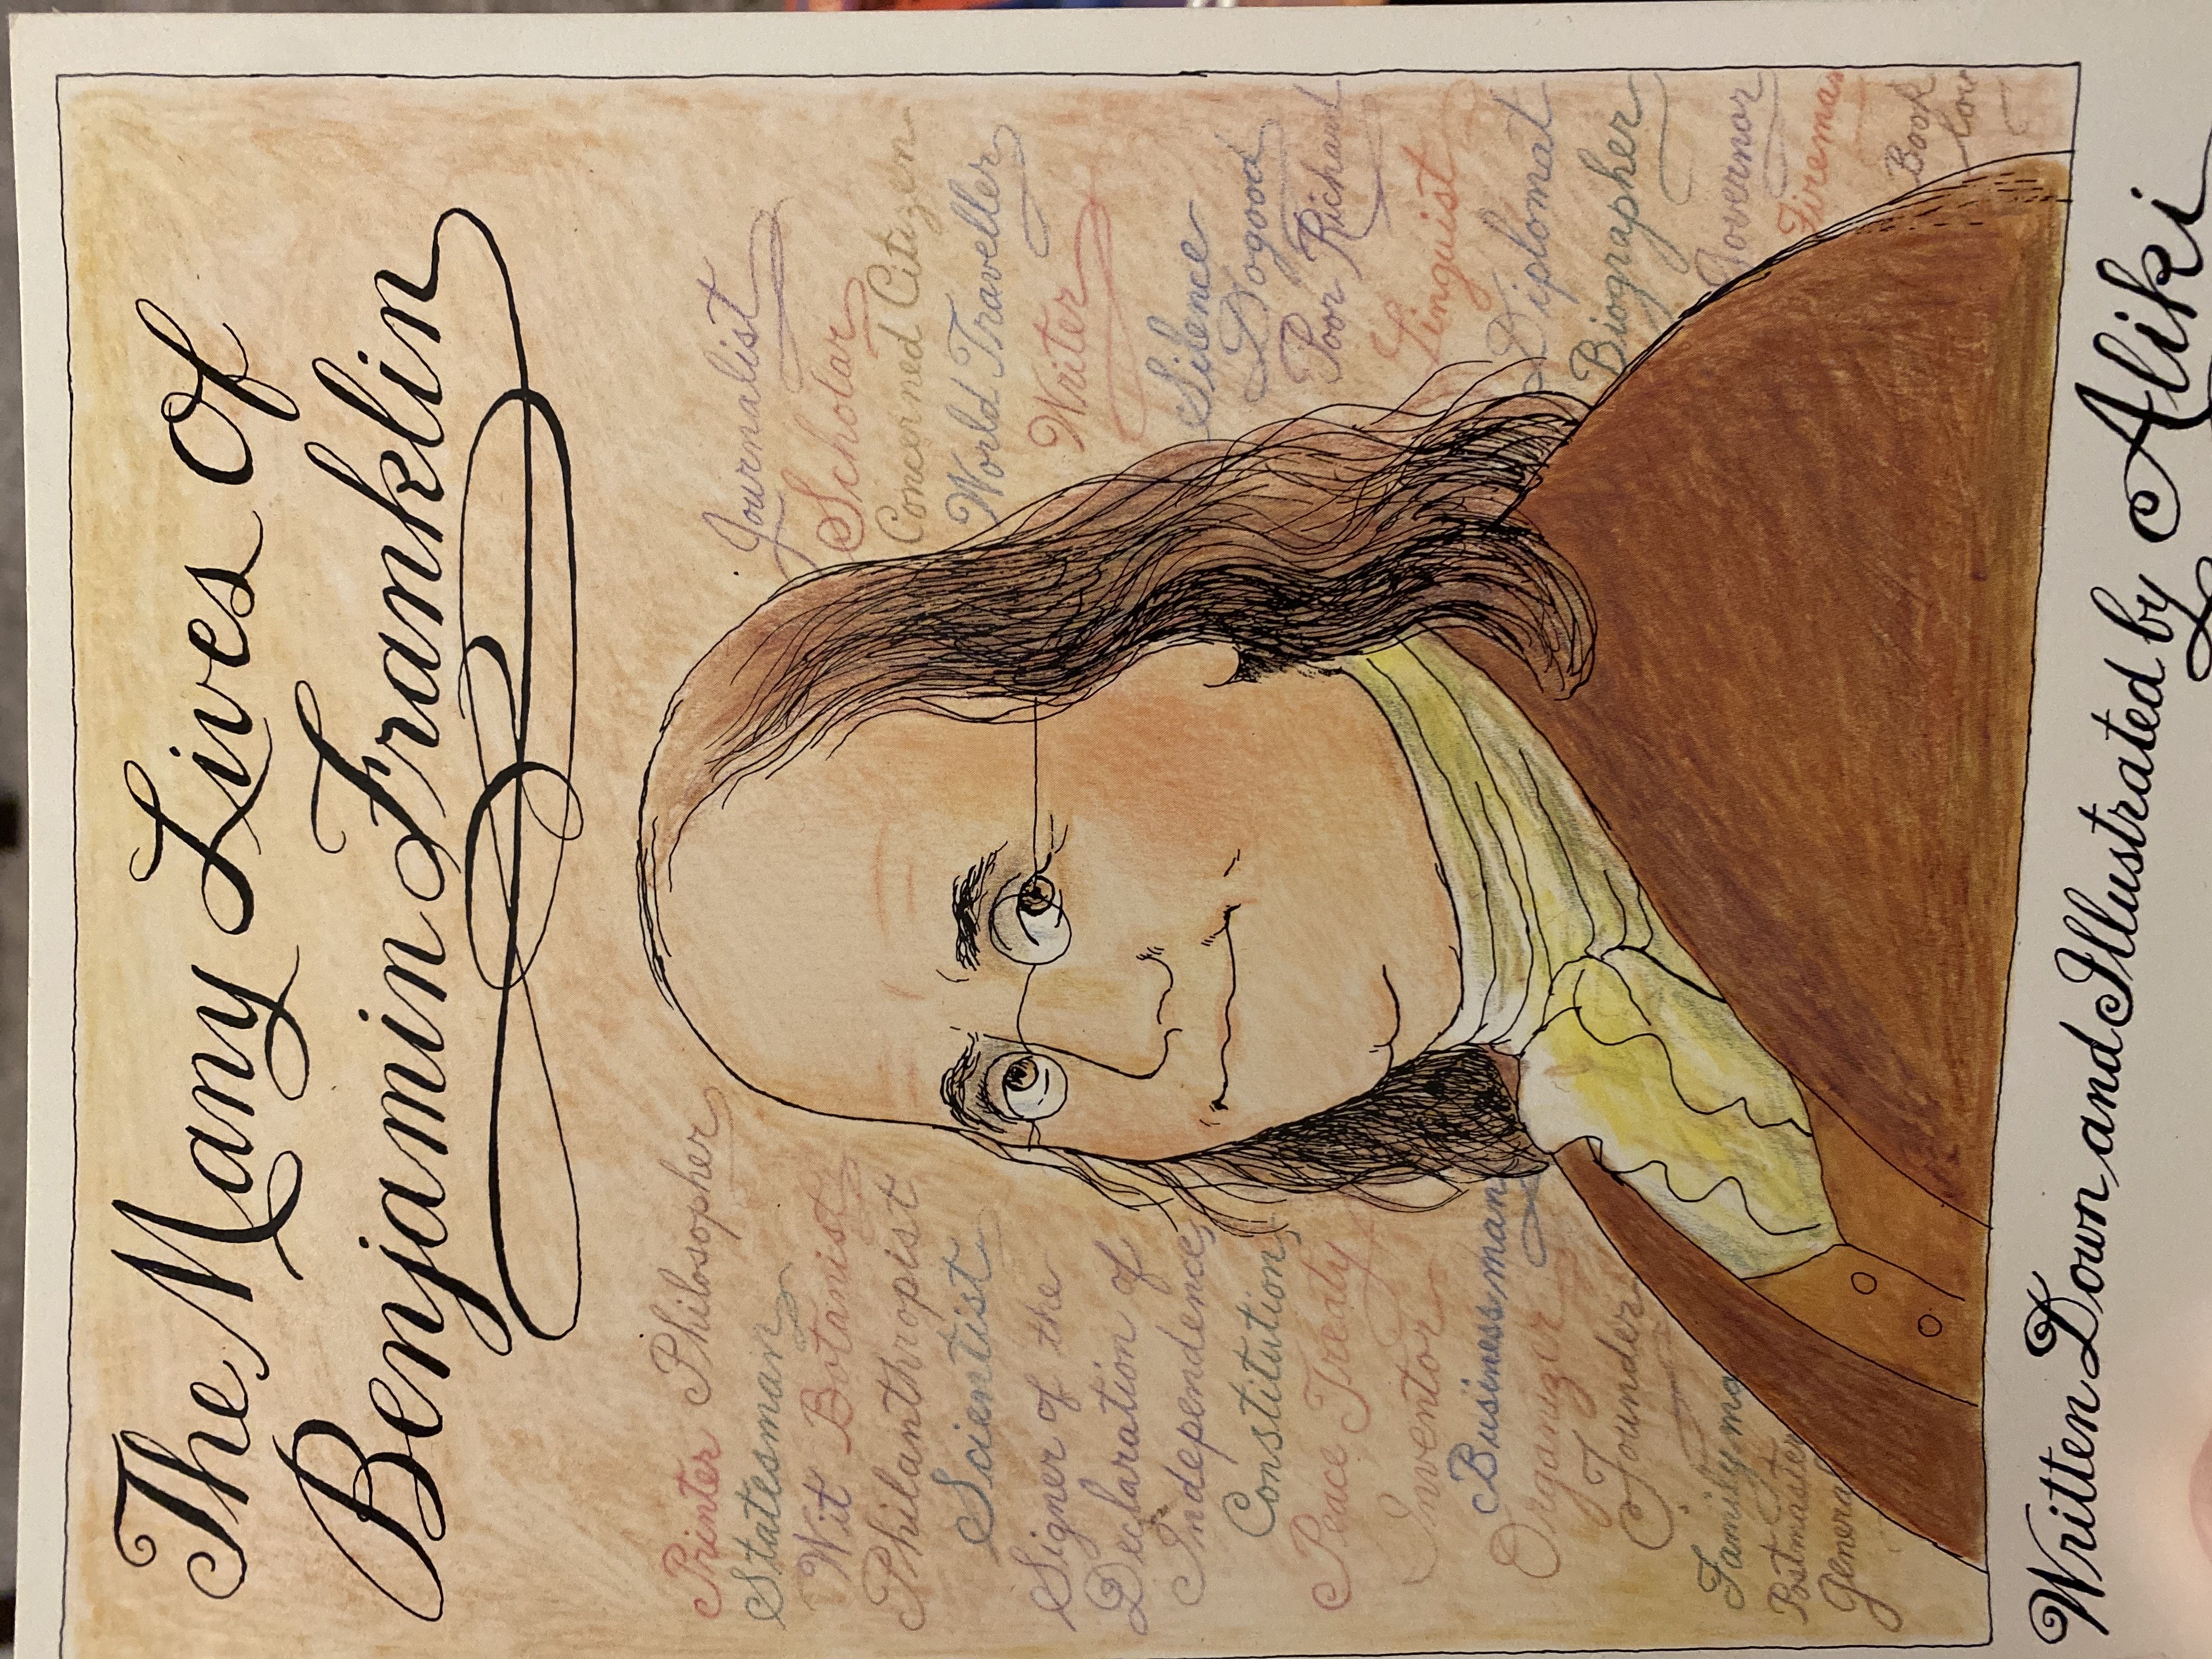 The Many Lives of
Benjamin Franklin
Printer Philosopher
Statesman
Wit Botanist
Philanthropist
Scientist
Signer of the
Declaration of
Independence,
Constitution,
Peace Treaty
Inventor
Businessman
Organizer
Founder
Family ma
Postmaster
General
Journalist
Scholar
Concerned Citizen
World Traveller
Writer
Silence
Dogood
Poor Richard
Linguist
Diplomat
Biographer
Governor
Fireman
Book
Written Down and Illustrated by Aliki